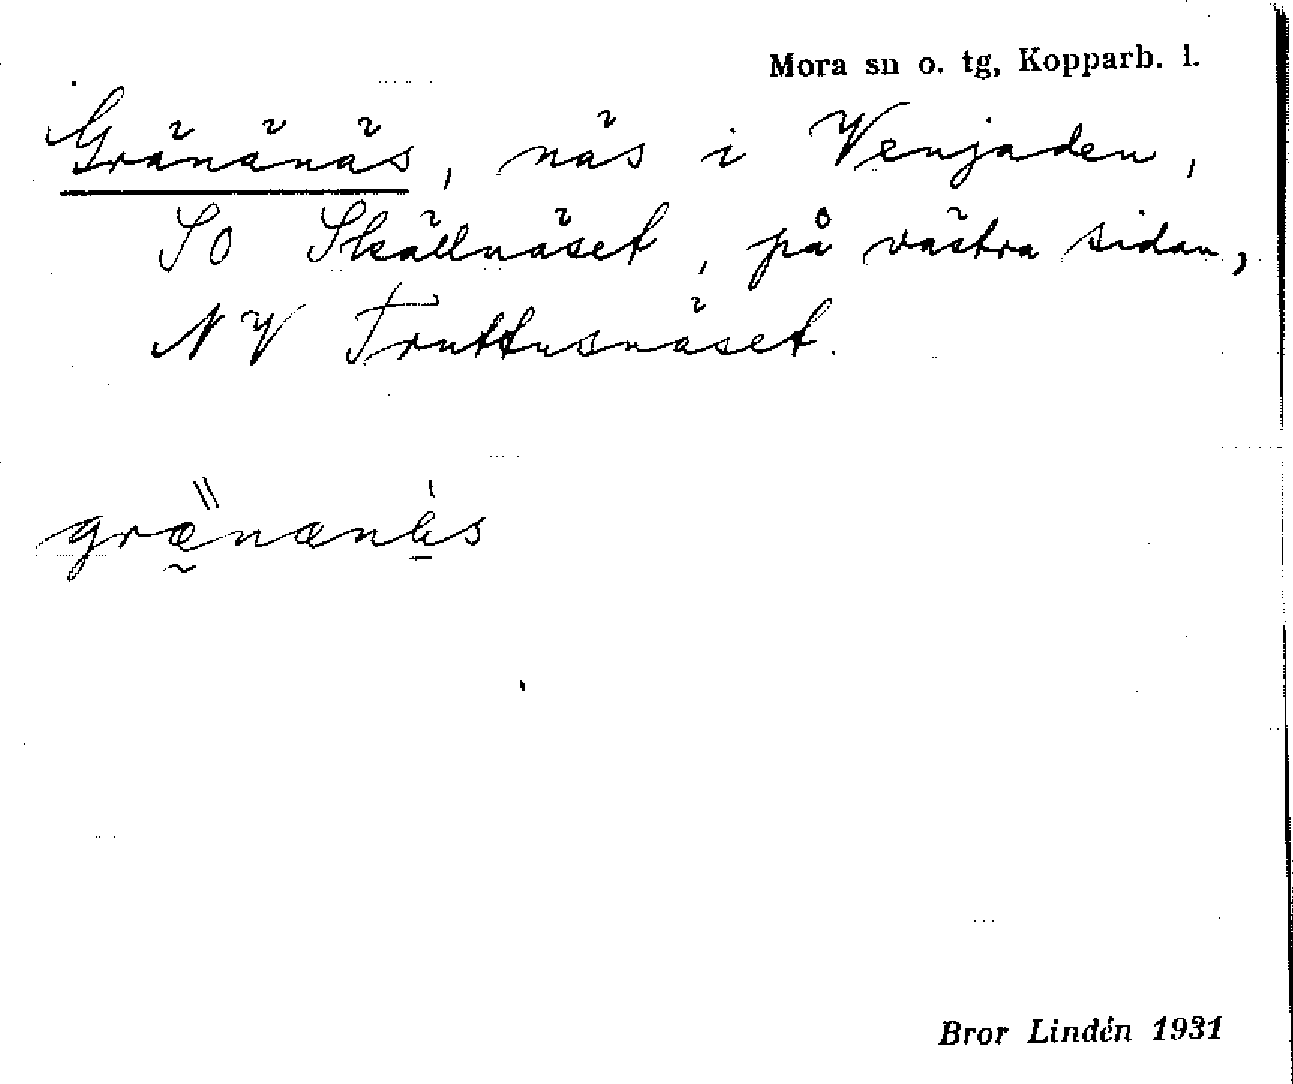 Mora sn o. tg, Kopparb. l.
Gränänäs, näs i Venjaden,
SO Skällnäset, på västra sidan,
NV Truttusnäset.
grænænäs
Bror Lindén 1931